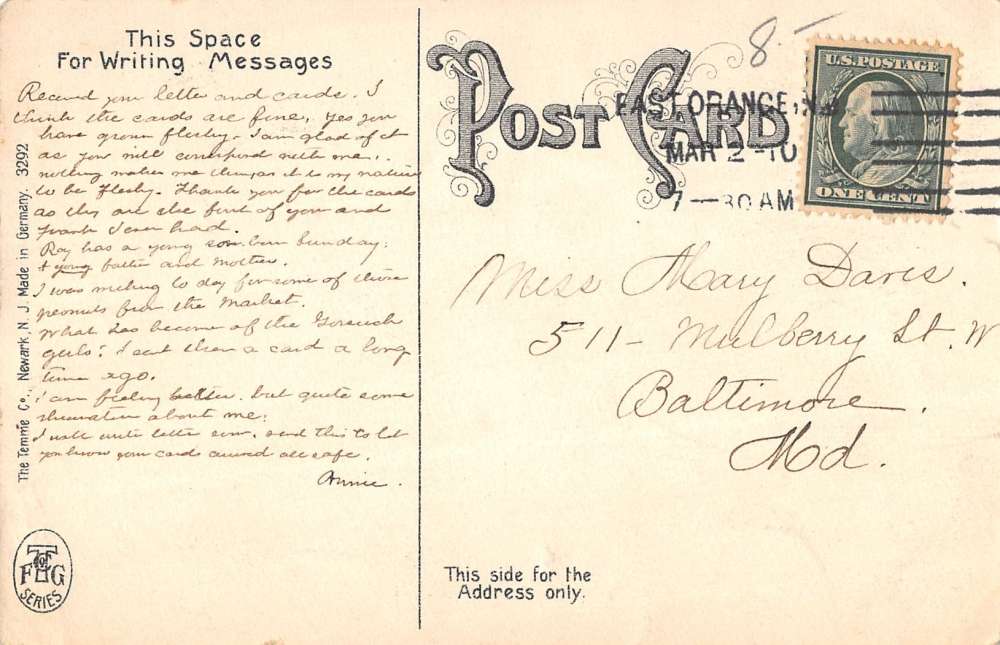 This Space
For Writing Messages
Received your letter and cards. I
think the cards are fine, yes you
have grown fleshy. I am glad of it
as you will correspond with me.
nothing makes me it is my nature
to be fleshy. Thank you for the cards
as they are the first of you and
Frank I ever had.
Ray has a young son born Sunday.
& young father and mother.
I was to day for some of those
peanuts from the market.
What has become of the
girls? I sent them a card a long
time ago.
I am feeling better. but quite some
about me.
I will write letter soon. send this to let
you know your cards arrived all safe.
Annie.
The Temme Co., Newark, N. J. Made in Germany. 3292
T of F G
SERIES
8-
POST CARD
EAST ORANGE, N.J.
MAR 2-10
7-30 AM
U.S. POSTAGE
ONE CENT
Miss Mary Davis.
511- Mulberry St. W
Baltimore.
Md.
This side for the
Address only.